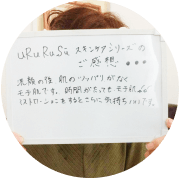 uRuRuSu スキンケアシリーズの
ご感想・・・
洗顔の後 肌のツッパリがなく
モチ肌です。時間がたってもモチ肌
ローションをするとさらに気持ち